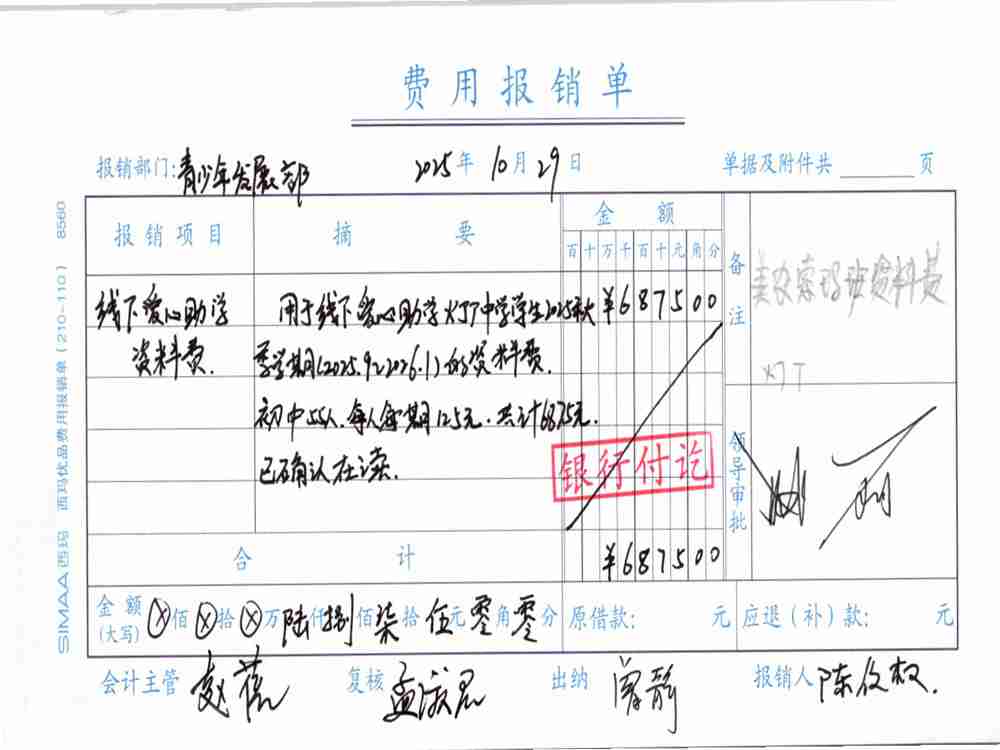 费用报销单
报销部门:青少年发展部 2025年10月29日 单据及附件共 页
报销项目 摘要 金额 备注
百十万千百十元角分
线下爱心助学 用于线下爱心助学 中学学生2025秋 ¥687500
资料费. 季学期(2025.9~2026.1)的资料费.
初中55人.每人每期125元.共计6875元.
已确认在读.
班资料费
银行付讫
领导审批
合计 ¥687500
金额(大写) ⊗佰⊗拾⊗万陆仟捌佰柒拾伍元零角零分 原借款: 元 应退(补)款: 元
会计主管 赵 复核 孟淑君 出纳 曾静 报销人 陈
SIMAA西玛 西玛优品费用报销单(210-110) 8560